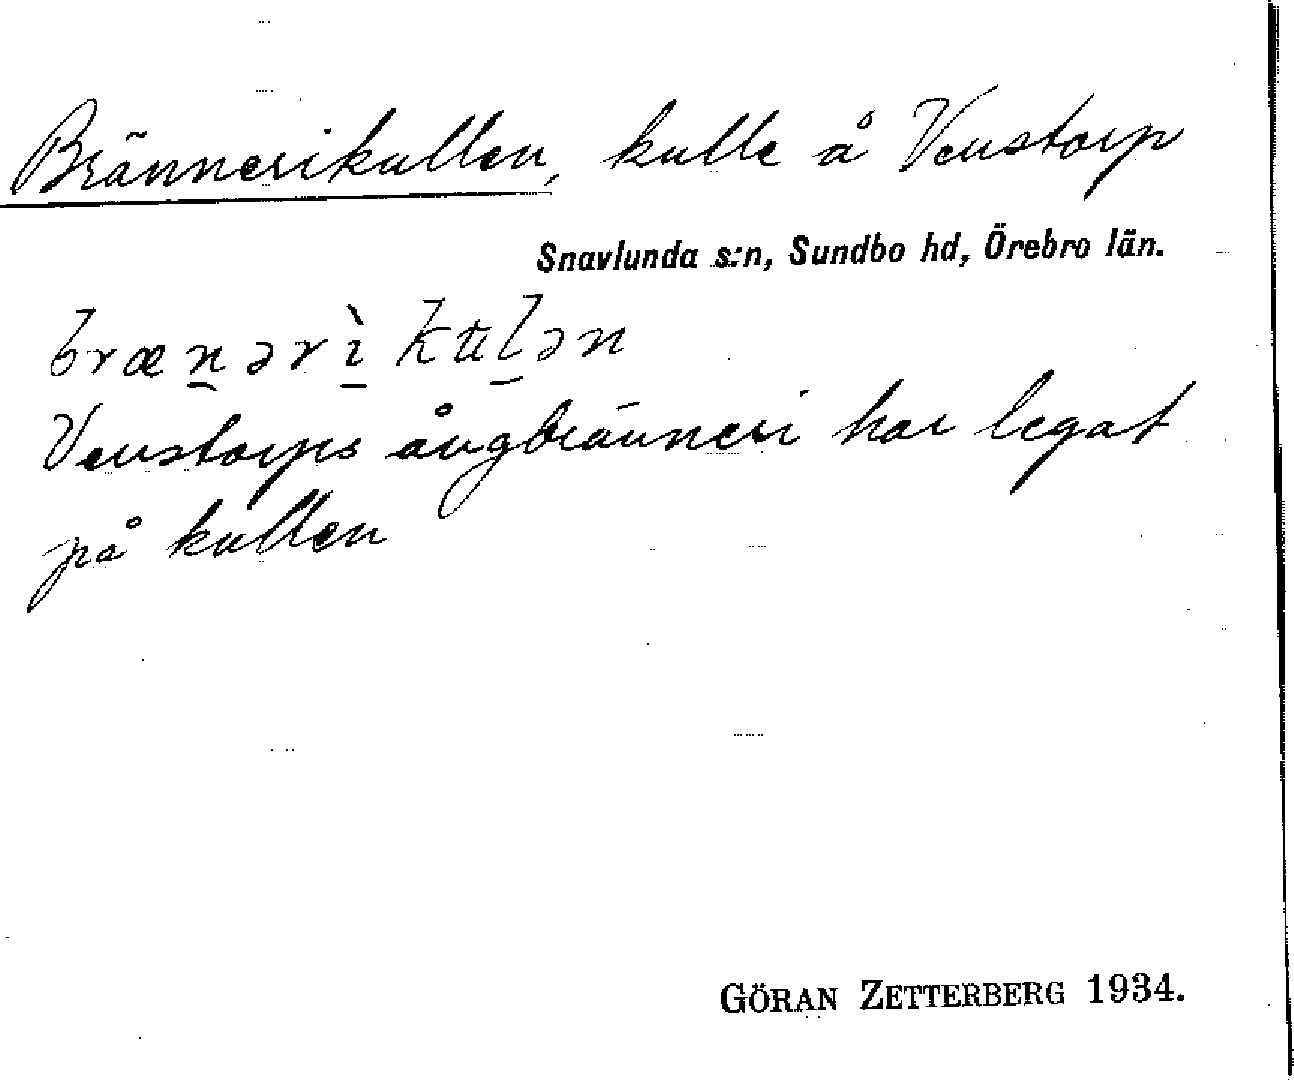 Brännerikullen, kulle å Venstorp
Snavlunda s:n, Sundbo hd, Örebro län.
bræn̠ərì̠kʉl̠ən
Venstorps ångbränneri har legat
på kullen
GÖRAN ZETTERBERG 1934.